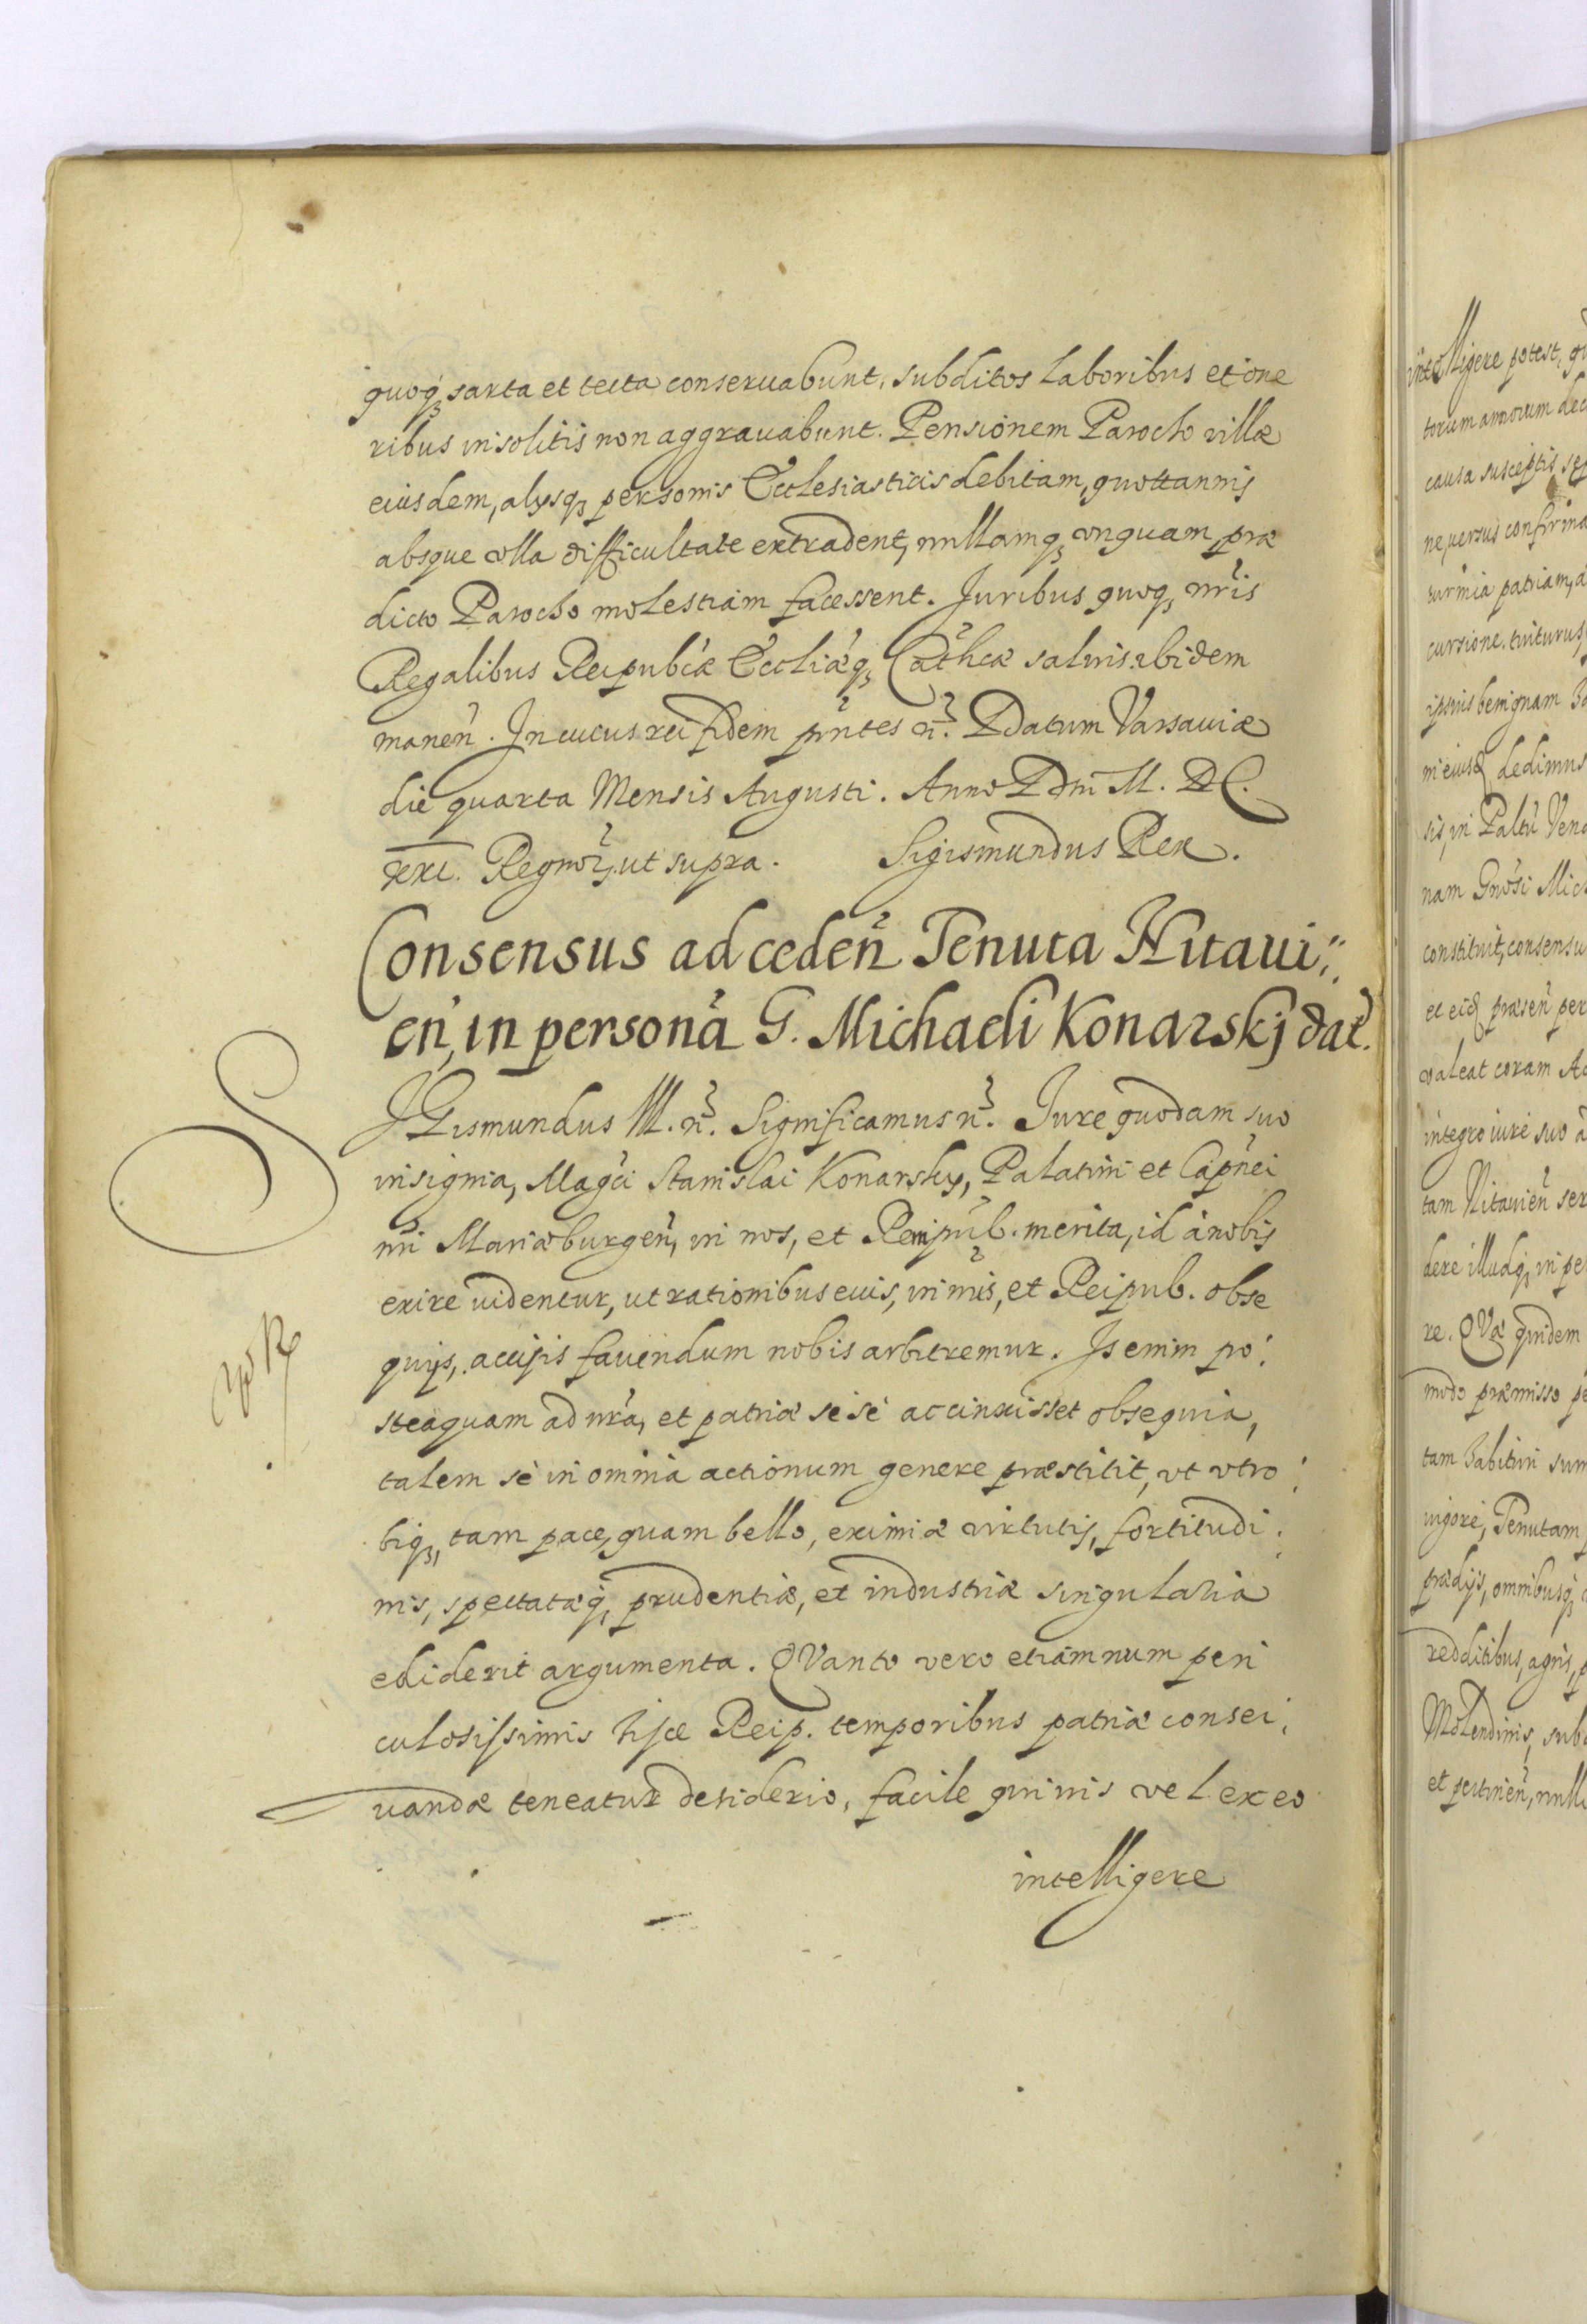 quoq3 sarta et tecta conseruabunt, subditos laboribus et one
ribus insolitis non aggrauabunt. Pensionem Parocho villæ
eiusdem, alijsq3 personis Ecclesiasticis debitam, quottannis
absque vlla difficultate extradent, nullamq3 vnquam præ
dicto Parocho molestiam facessent. Juribus quoq3 nris
Regalibus Reipubcæ Eccliæq3 Cathcæ saluis ibidem
manen. In cuius rei fidem pntes n. Datum Varsauiæ
die quarta Mensis Augusti. Anno Dni M. DC.
xxi. Regnor. ut supra. Sigismundus Rex.
Consensus ad ceden Tenuta Nitaui
en, in persona G. Michaeli Konarskj dat.
SIGismundus III. n. Significamus n. Jure quodam suo
insignia, Magci Stanislai Konarsky, Palatini et Capnei
nri Mariæburgen, in nos, et Rempub. merita, id à nobis
exire videntur, ut rationibus euis, in nris, et Reipub. obse
quijs, accisis fauendum nobis arbitremur. Is enim po
steaquam ad nra, et patriæ sese accinxisset obsequia,
talem se in omnia actionum genere præstitit, vt vtro
biq3, tam pace, quam bello, eximiæ virtutis, fortitudi
nis, spectatæq3 prudentiæ, et industriæ singularia
ediderit argumenta. QVanto vero etiamnum peri
culosissimis hisce Reip. temporibus patriæ conser
uandæ teneatur desiderio, facile quiuis vel ex eo
intelligere
intelligere potest,
torum annorum
causa susceptis
ne, uersus
patriam,
cursione.
ipsius benignam
dedimus
sis, in Paltu
nam Gnosi
constituit, consensu
et eid præsen per
valeat coram
integro iure suo
tam Nitauien
dere illudq3 in
re. QVæ quidem
modo præmisso
tam
uigore, Tenutam
prædijs, omnibusq3
redditibus, agris,
Molendinis,
et pertinen,